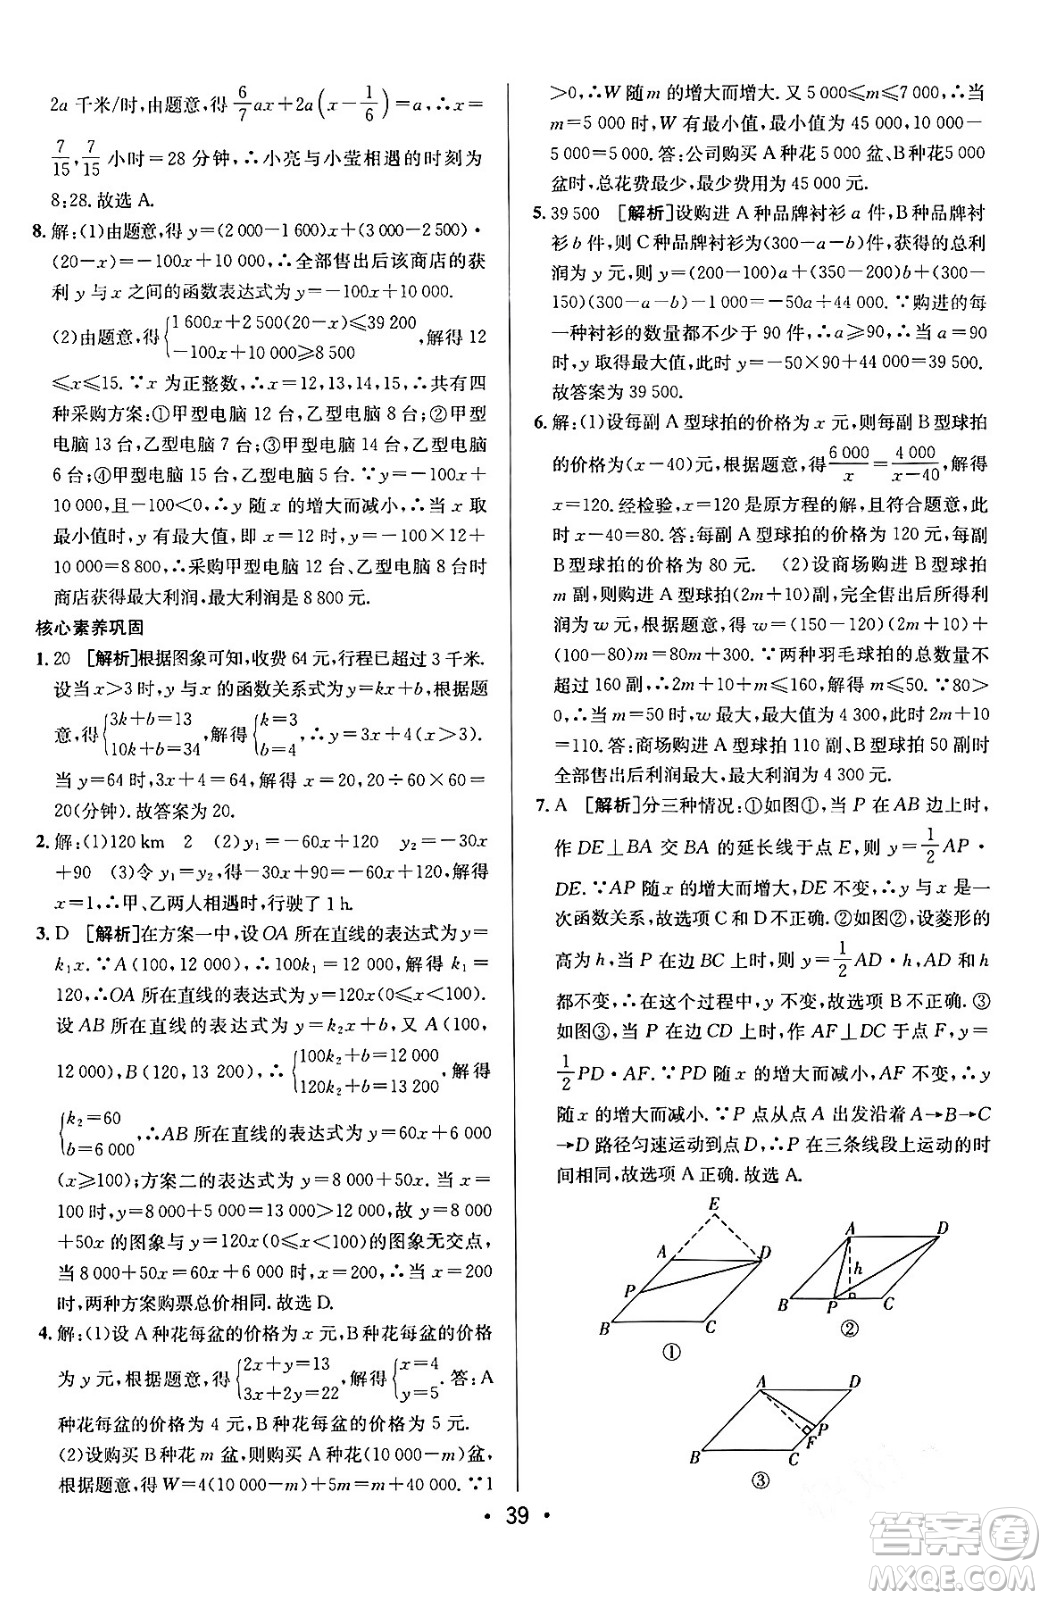 2a 千米/时,由题意,得 6/7 ax+2a(x-1/6)=a,∴x=
7/15, 7/15 小时=28 分钟,∴小亮与小莹相遇的时刻为
8:28.故选 A.
8. 解:(1)由题意,得 y=(2 000-1 600)x+(3 000-2 500)·
(20-x)=-100x+10 000,∴全部售出后该商店的获
利 y 与 x 之间的函数表达式为 y=-100x+10 000.
(2)由题意,得{1 600x+2 500(20-x)≤39 200
-100x+10 000≥8 500 ,解得 12
≤x≤15.∵x 为正整数,∴x=12、13、14、15,共有四
种采购方案:①甲型电脑 12 台,乙型电脑 8 台;②甲型
电脑 13 台,乙型电脑 7 台;③甲型电脑 14 台,乙型电脑
6 台;④甲型电脑 15 台,乙型电脑 5 台.∵y=-100x+
10 000,且-100<0,∴y 随 x 的增大而减小,∴当 x 取
最小值时,y 有最大值,即 x=12 时,y最大=-100×12+
10 000=8 800,∴采购甲型电脑 12 台、乙型电脑 8 台时
商店获得最大利润,最大利润是 8 800 元.
核心素养巩固
1. 20 [解析]根据图象可知,收费 64 元,行程已超过 3 千米.
设当 x>3 时,y 与 x 的函数关系式为 y=kx+b,根据题
意,得{3k+b=13
10k+b=34 ,解得{k=3
b=4 ,∴y=3x+4(x>3).
当 y=64 时,3x+4=64,解得 x=20,20÷60×60=
20(分钟).故答案为 20.
2. 解:(1)120 km 2 (2)y₁=-60x+120 y₂=-30x
+90 (3)令 y₁=y₂,得-30x+90=-60x+120,解得
x=1,∴甲、乙两人相遇时,行驶了 1 h.
3. D [解析]在方案一中,设 OA 所在直线的表达式为 y=
k₁x.∵A(100,12 000),∴100k₁=12 000,解得 k₁=
120,∴OA 所在直线的表达式为 y=120x(0≤x<100).
设 AB 所在直线的表达式为 y=k₂x+b,又 A(100,
12 000),B(120,13 200),∴{100k₂+b=12 000
120k₂+b=13 200 ,解得
{k₂=60
b=6 000 ,∴AB 所在直线的表达式为 y=60x+6 000
(x≥100);方案二的表达式为 y=50x+8 000,当 x=
100 时,y=8 000+5 000=13 000>12 000,故 y=8 000
+50x 的图象与 y=120x(0≤x<100)的图象无交点,
当 8 000+50x=6 000+60x 时,解得 x=200,∴x=200
时,两种方案购票总价相同.故选 D.
4. 解:(1)设 A 种花每盆的价格为 x 元,B 种花每盆的价格
为 y 元,根据题意,得{2x+y=13
3x+2y=22 ,解得{x=4
y=5 .答:A
种花每盆的价格为 4 元,B 种花每盆的价格为 5 元.
(2)设购买 B 种花 m 盆,则购买 A 种花(10 000-m)盆,
根据题意,得 W=4(10 000-m)+5m=m+40 000.∵1
>0,∴W 随 m 的增大而增大.又 5 000≤m≤7 000,∴当
m=5 000 时,W 有最小值,最小值为 45 000,10 000-
5 000=5 000.答:公司购买 A 种花 5 000 盆、B 种花5 000
盆时,总花费最少,最少费用为 45 000 元.
5. 39 500 [解析]设购进 A 种品牌衬衫 a 件,B 种品牌衬
衫 b 件,则 C 种品牌衬衫为(300-a-b)件,获得的总利
润为 y 元,则 y=(200-100)a+(350-200)b+(300-
150)(300-a-b)=-50a+44 000... ∵购进的每
一种衬衫的数量都不少于 90 件,∴a≥90,∴当 a=90
时,y 取得最大值,此时 y=-50×90+44 000=39 500.
故答案为 39 500.
6. 解:(1)设每副 A 型球拍的价格为 x 元,则每副 B 型球拍
的价格为(x-40)元,根据题意,得6 000/x=4 000/(x-40),解得
x=120.经检验,x=120 是原方程的解,且符合题意,此
时 x-40=80.答:每副 A 型球拍的价格为 120 元,每副
B 型球拍的价格为 80 元. (2)设商场购进 B 型球拍
m 副,则购进 A 型球拍(2m+10)副,完全售出后所得利
润为 w 元,根据题意,得 w=(150-120)(2m+10)+
(100-80)m=80m+300.∵两种羽毛球拍的总数量不
超过 160 副,∴2m+10+m≤160,解得 m≤50.∵80>
0,∴当 m=50 时,w 最大,最大值为 4 300,此时 2m+10
=110.答:商场购进 A 型球拍 110 副、B 型球拍 50 副时
全部售出后利润最大,最大利润为 4 300 元.
7. A [解析]分三种情况:①如图①,当 P 在 AB 边上时,
作 DE⊥BA 交 BA 的延长线于点 E,则 y=1/2AP·
DE.∵AP 随 x 的增大而增大,DE 不变,∴y 与 x 是一
次函数关系,故选项 C 和 D 不正确.②如图②,设菱形的
高为 h,当 P 在边 BC 上时,y=1/2AD·h,∵AD 和 h
都不变,∴在这个过程中,y 不变,故选项 B 不正确.③
如图③,当 P 在边 CD 上时,作 AF⊥DC 于点 F,y=
1/2PD·AF.∵PD 随 x 的增大而减小,AF 不变,∴y
随 x 的增大而减小.∵P 点从点 A 出发沿着 A→B→C
→D 路径匀速运动到点 D,∴P 在三条线段上运动的时
间相同,故选项 A 正确.故选 A.
E
A D
P
B C
①
A D
h
B P C
②
A D
P
F
B C
③
· 39 ·
答案圈
MXQE.COM